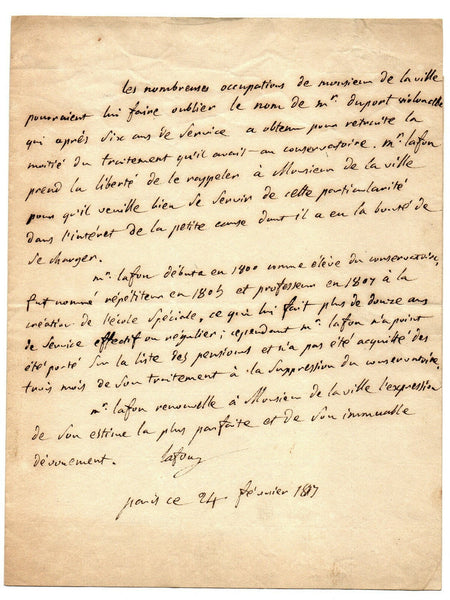 les nombreuses occupations de monsieur de la ville
pourraient lui faire oublier le nom de mr duport violoncelle
qui après six ans de service a obtenu pour retraite la
moitié du traitement qu'il avait au conservatoire. mr lafon
prend la liberté de le rappeler à Monsieur de la ville
pour qu'il veuille bien se servir de cette particularité
dans l'intérêt de la petite cause dont il a eu la bonté de
se charger.
mr lafon débuta en 1800 comme élève du conservatoire,
fut nommé répétiteur en 1805 et professeur en 1807 à la
création de l'école spéciale, ce qui lui fait plus de douze ans
de service effectif ou régulier; cependant mr lafon n'a point
été porté sur la liste des pensions et n'a pas été acquitté des
trois mois de son traitement à la suppression du conservatoire.
mr lafon renouvelle à Monsieur de la ville l'expression
de son estime la plus parfaite et de son immuable
dévouement. lafon
paris ce 24 février 1817